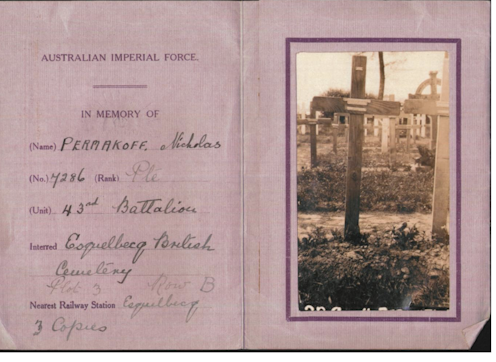 AUSTRALIAN IMPERIAL FORCE.
IN MEMORY OF
(Name) PERMAKOFF. Nicholas
(No.) 7286 (Rank) Pte
(Unit) 43rd Battalion
Interred Esquelbecq British
Cemetery
Plot 3 Row B
Nearest Railway Station Esquelbecq
3 Copies